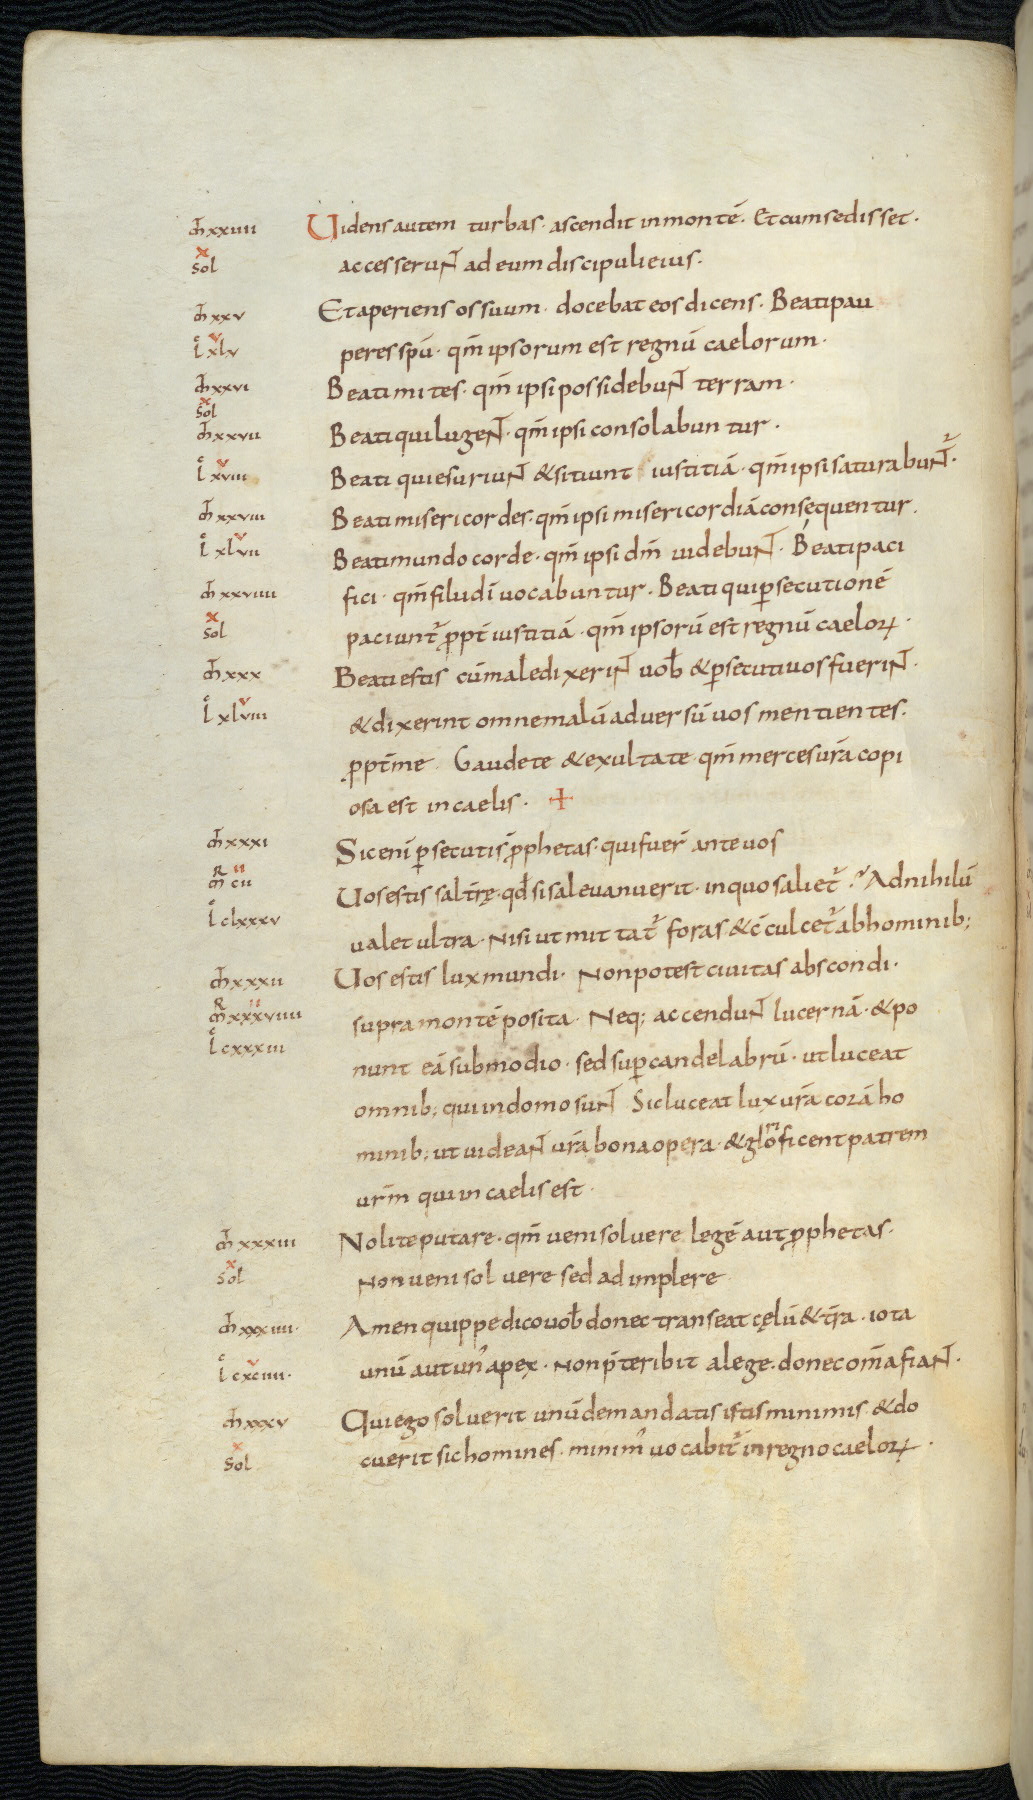 m̄ xxiiii Uidens autem turbas · ascendit in montē · Et cum sedisset ·
x
sol accesserunt̄ ad eum discipuli eius ·
m̄ xxv Et aperiens os suum · docebat eos dicens · Beati pau
v
l xlv peres spū · qm̄ ipsorum est regnū caelorum ·
m̄ xxvi Beati mites · qm̄ ipsi possidebunt̄ terram ·
x
sol
m̄ xxvii Beati qui lugent̄ · qm̄ ipsi consolabuntur ·
v
l xviii Beati qui esuriunt̄ & sitiunt iustitiā · qm̄ ipsi saturabunt̄ ·
m̄ xxviii Beati misericordes · qm̄ ipsi misericordiā consequentur ·
v
l xlvii Beati mundo corde · qm̄ ipsi dm̄ uidebunt̄ · Beati paci
m̄ xxviiii fici · qm̄ filii dī uocabuntur · Beati qui ꝑsecutionē
x
sol paciunt̄ ꝓpt̄ iustitiā · qm̄ ipsorū est regnū caeloꝝ ·
m̄ xxx Beati estis cū maledixerint̄ uob̄ & ꝑsecuti uos fuerint̄ ·
v
l xlviii & dixerint omne malū aduersū uos mentientes ·
ꝓpt̄ me Gaudete & exultate qm̄ merces urā copi
osa est in caelis · +
m̄ xxxi Sic eni ꝑsecuti s̄ ꝓphetas · qui fuer̄ ante uos
R ii
m̄ cii Uos estis sal trę̄ · qd̄ si sal euanuerit · in quo saliet̄ · Ad nihilū
l clxxxv ualet ultra · Nisi ut mittat̄ foras & c̄culcet̄ ab hominib;
m̄ xxxii Uos estis lux mundi · Non potest ciuitas abscondi ·
R ii
m̄ xxxviiii supra montē posita · Neq; accendunt̄ lucernā · & po
l cxxxiii nunt eā sub modio · sed suꝑ candelabrū · ut luceat
omnib; qui in domo sunt̄ Sic luceat lux urā corā ho
minib; ut uideant̄ urā bona opera · & glorificent patrem
urm̄ qui in caelis est ·
m̄ xxxiii Nolite putare · qm̄ veni soluere legē aut ꝓphetas ·
x
sol Non veni soluere sed adimplere
m̄ xxxiiii · Amen quippe dico uob̄ donec transeat cęlū & trā · iota
v
l cxciiii · unū aut un' apex · Non p̄teribit a lege · donec om̄a fiant̄ ·
m̄ xxxv Qui ego soluerit unū de mandatis istis minimis · & do
x
sol cuerit sic homines · minim' uocabit̄ in regno caeloꝝ ·